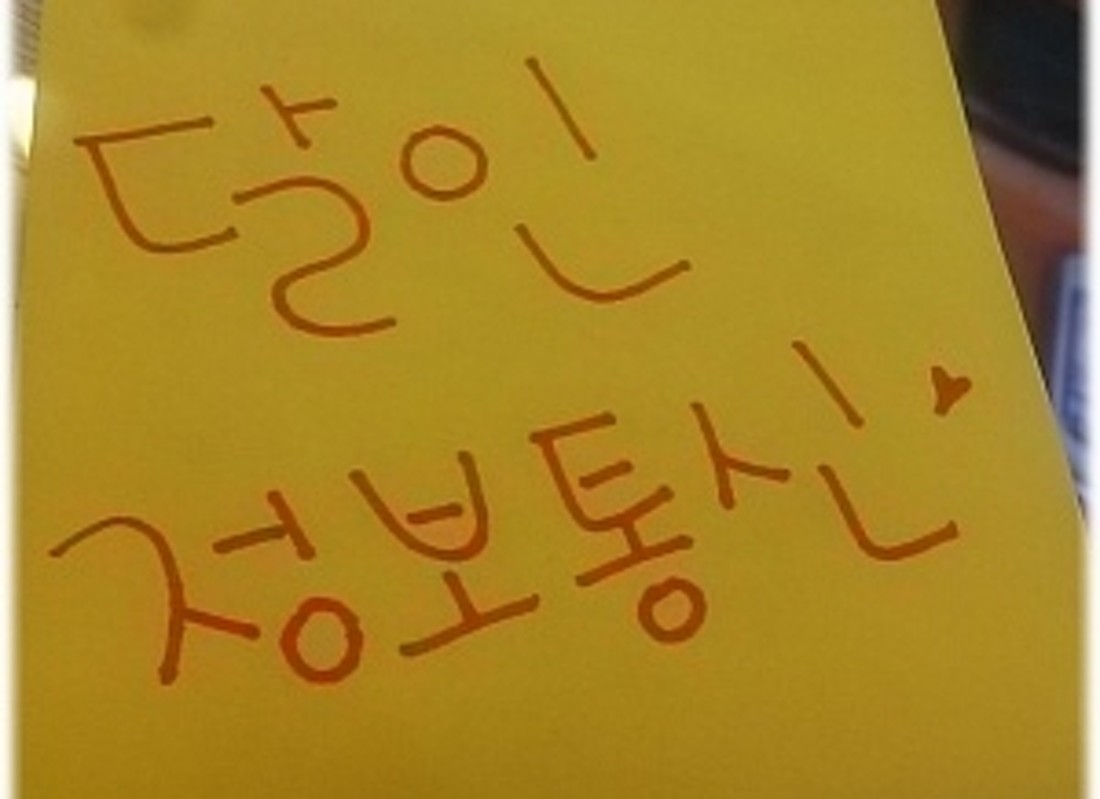 달인
정보통신♥